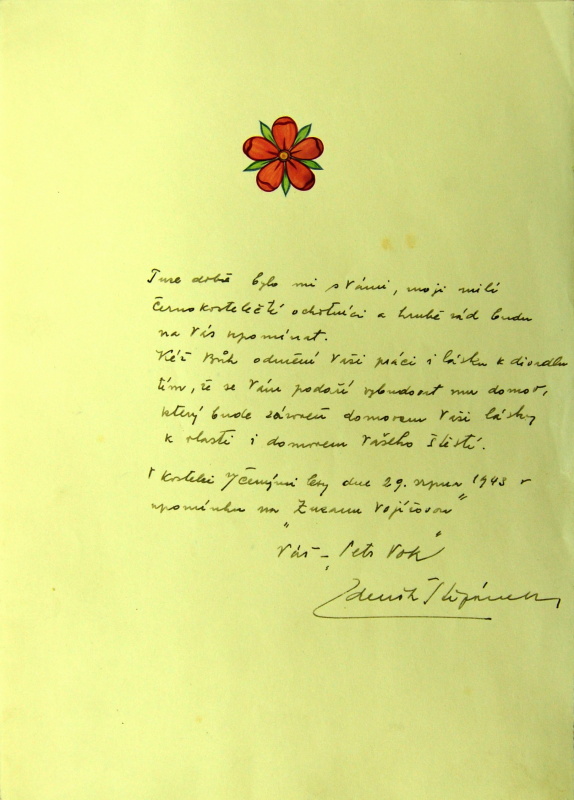 dobře bylo mi s Vámi, moji milí
černokostelečtí ochotníci a hrubě rád budu
na Vás vzpomínat.
Kéž Bůh odmění Vaši práci i lásku k divadlu
tím, že se Vám podaří vybudovat mu domov,
který bude zároveň domovem Vaší lásky
k vlasti i domovem Vašeho štěstí.
V Kostelci n/Černými lesy dne 29. srpna 1943 v
upomínku na "Zuzanu Vojířovou"
Váš - "Petr Vok"
Zdeněk Štěpánek